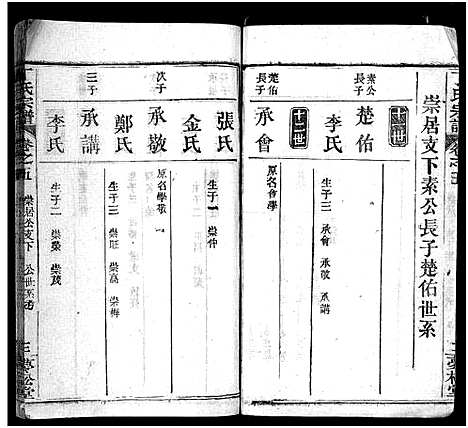 崇居支下素公長子楚佑世系
十一世
素公長子
楚佑
李氏
生子三 承會 承敬 承講
十二世
楚佑長子
承會
原名會學
張氏
生子一 崇仲
金氏
次子
承敬
原名學敬
鄭氏
生子三 崇旺 崇高 崇梅
三子
承講
李氏
生子二 崇榮 崇茂
丁氏宗譜
卷之五
崇居公支下
夢松堂